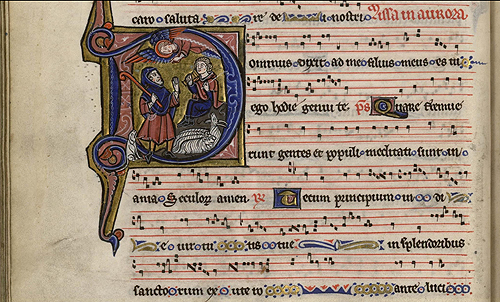 caro saluta re dei nostri Missa in aurora
Dominus dixit ad me filius meus es tu
ego hodie genui te ps Quare fremue
runt gentes et populi meditati sunt in
ania Seculorum amen Tecum principium in di
e uirtu tis tue in splendoribus
sanctorum ex utero ante luci